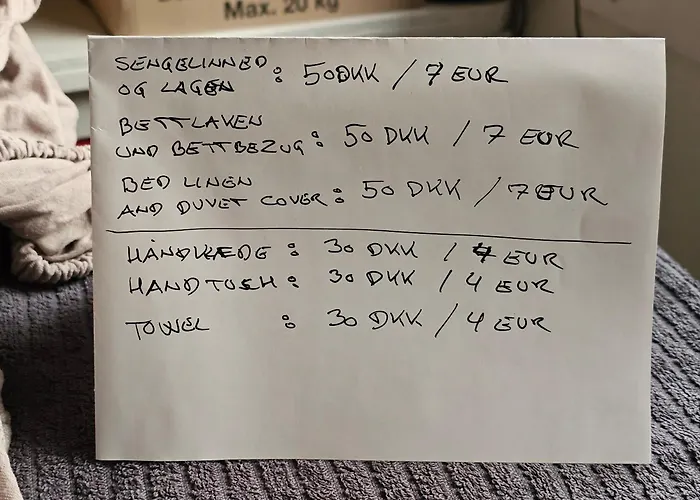 Max. 20 kg
SENGELINNED
OG LAGEN : 50DKK / 7 EUR
BETTLAKEN
UND BETTBEZUG : 50 DKK / 7 EUR
BED LINEN
AND DUVET COVER : 50 DKK / 7 EUR
HÅNDKLÆDE : 30 DKK / 4 EUR
HANDTUCH : 30 DKK / 4 EUR
TOWEL : 30 DKK / 4 EUR